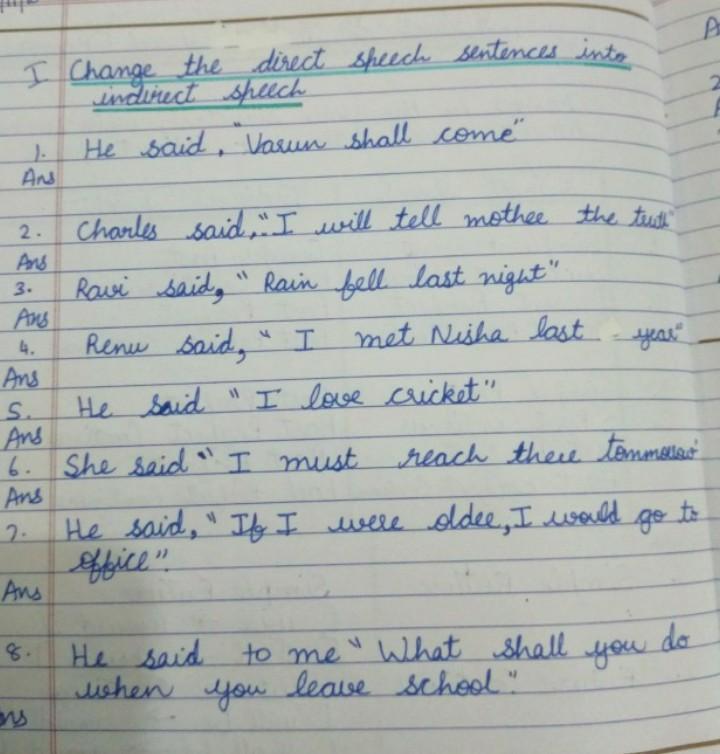 I Change the direct speech sentences into
indirect speech
1. He said, "Varun shall come"
Ans
2. Charles said, "I will tell mothee the truth"
Ans
3. Ravi said, "Rain fell last night"
Ans
4. Renu said, "I met Nisha last year"
Ans
5. He said "I love cricket"
Ans
6. She said "I must reach there tommorow"
Ans
7. He said, "If I were oldee, I would go to
office".
Ans
8. He said to me "What shall you do
when you leave school."
Ans